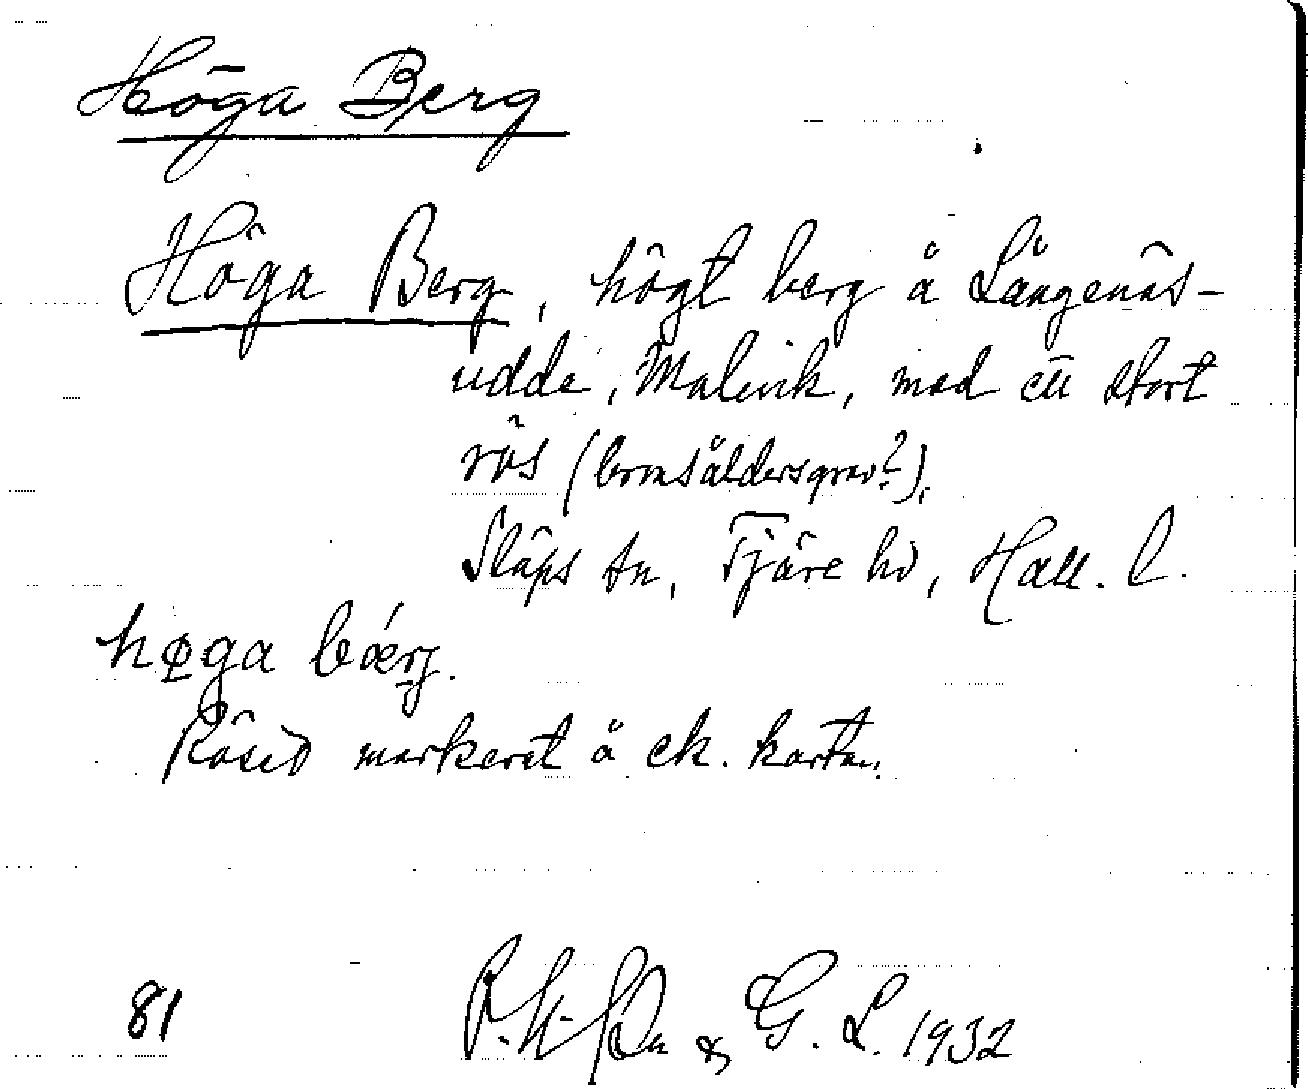 Höga Berg
Höga Berg, högt berg å Långenäs-
udde, Malevik, med ett stort
rös (bronsåldersgrav?).
Släps sn, Fjäre hd, Hall. l.
høga bǽrj.
Röset markerat å ek. kartan.
81 & G. L. 1932